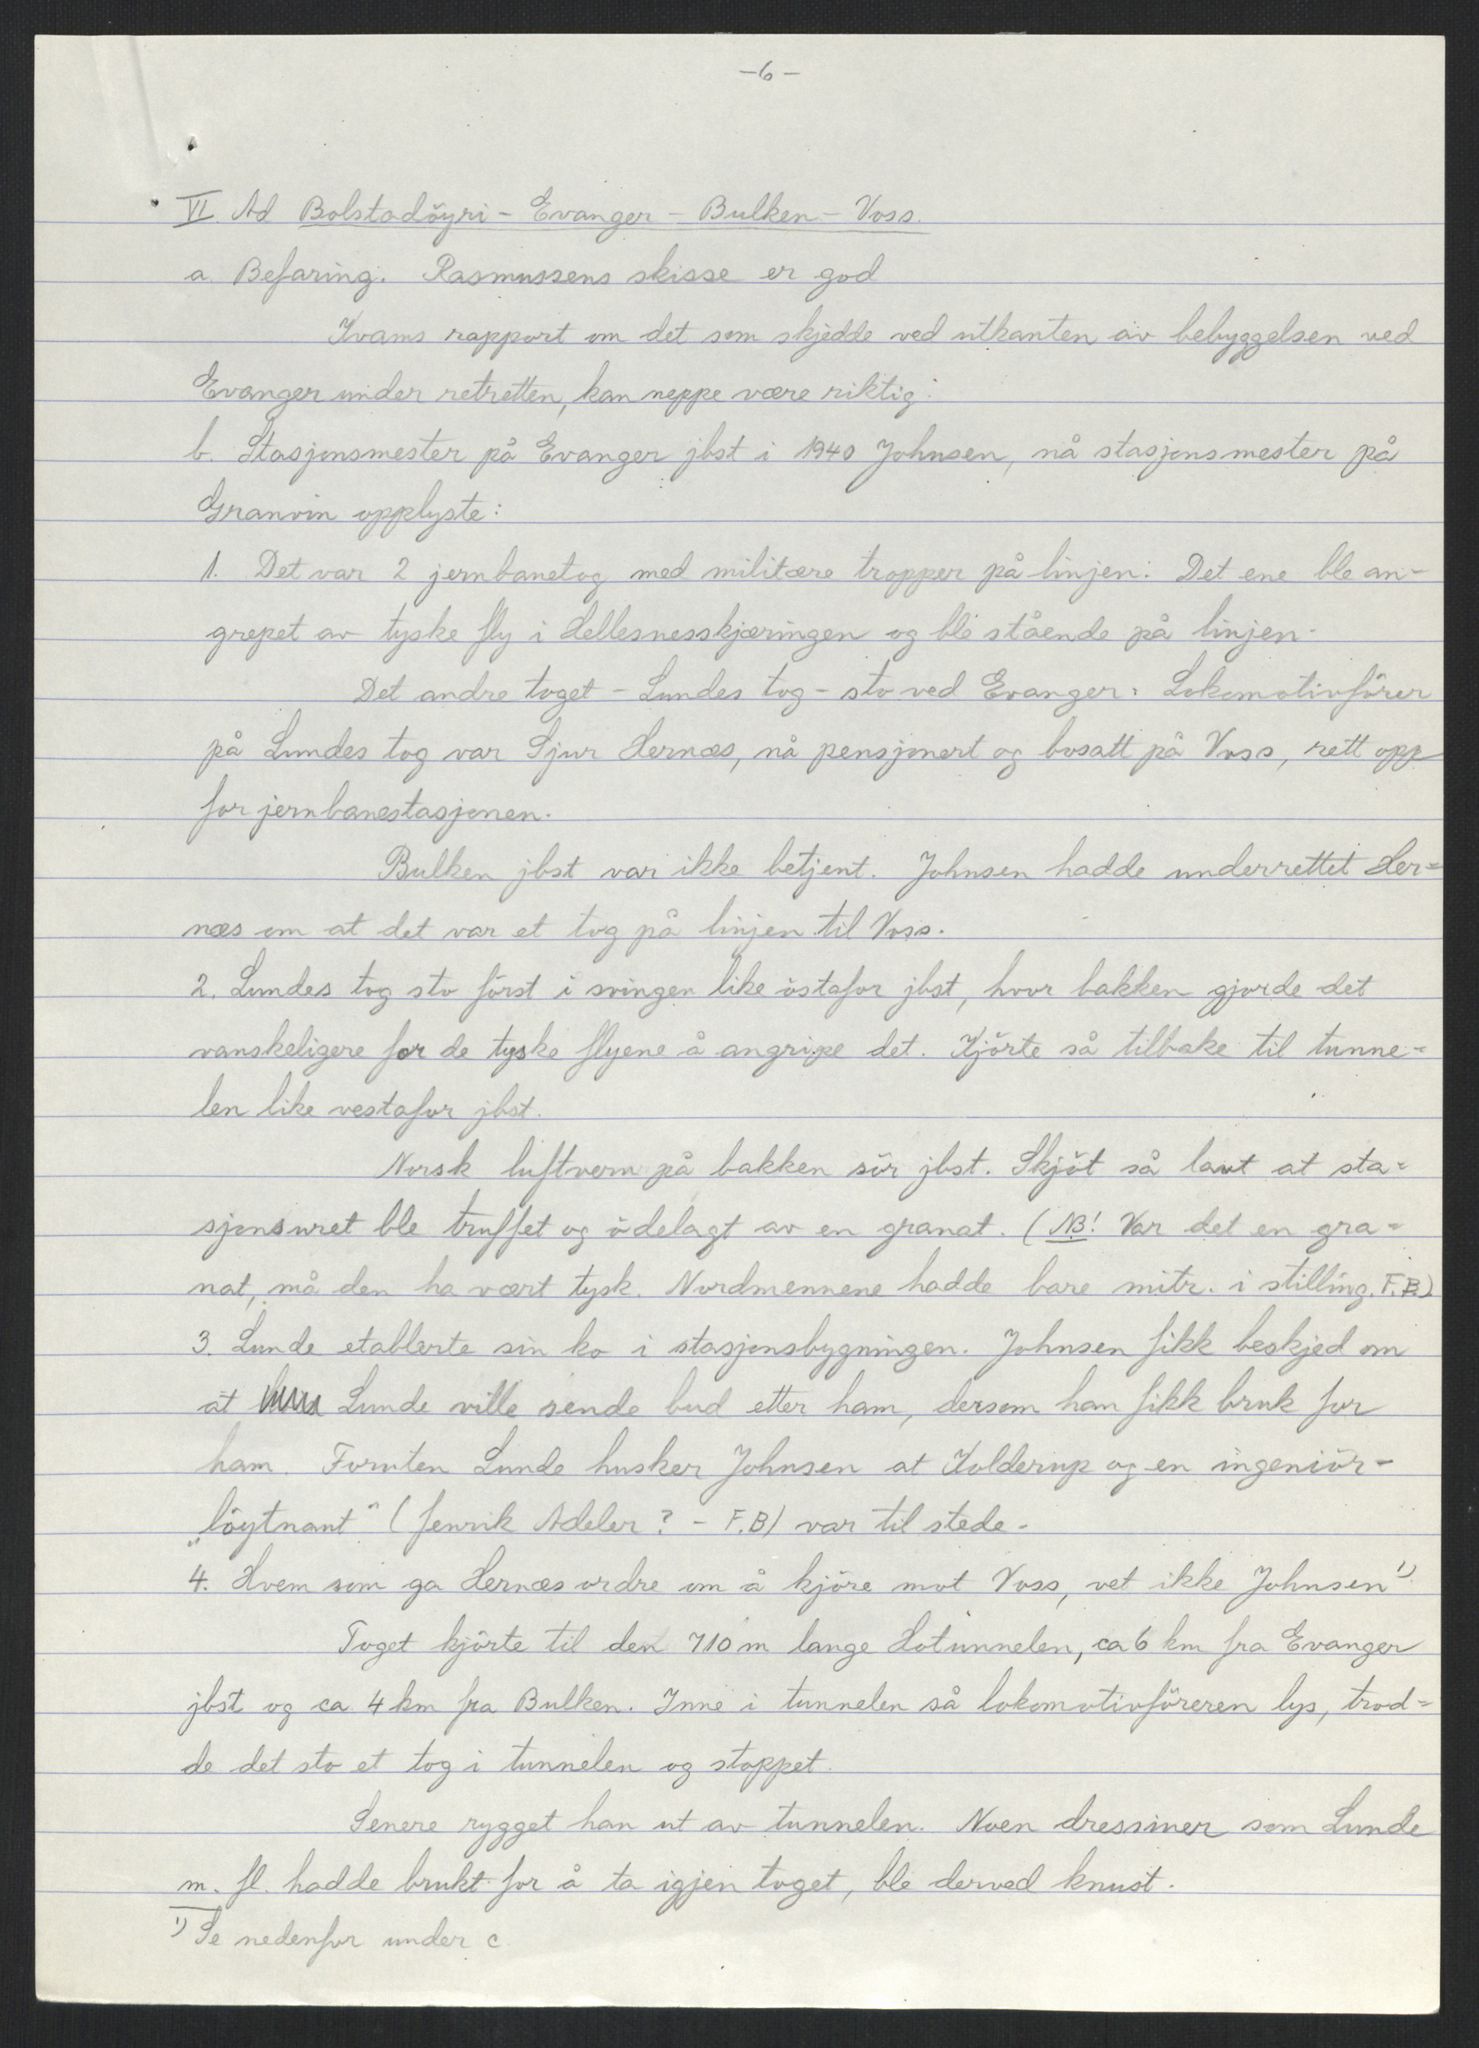 -6-
VI Ad Bolstadöyri - Evanger - Bulken - Voss.
a. Befaring. Rasmussens skisse er god
Kvams rapport om det som skjedde ved utkanten av bebyggelsen ved
Evanger under retretten, kan neppe være riktig.
b. Stasjonsmester på Evanger jbst i 1940 Johnsen, nå stasjonsmester på
Granvin opplyste:
1. Det var 2 jernbanetog med militære tropper på linjen. Det ene ble an-
grepet av tyske fly i Hellesnesskjæringen og ble stående på linjen.
Det andre toget - Lundes tog - sto ved Evanger. Lokomotivförer
på Lundes tog var Sjur Hernæs, nå pensjonert og bosatt på Voss, rett opp
for jernbanestasjonen.
Bulken jbst var ikke betjent. Johnsen hadde underrettet Her-
næs om at det var et tog på linjen til Voss.
2. Lundes tog sto först i svingen like östafor jbst, hvor bakken gjorde det
vanskeligere for de tyske flyene å angripe det. Kjörte så tilbake til tunne-
len like vestafor jbst.
Norsk luftvern på bakken sör jbst. Skjöt så lavt at sta-
sjonsuret ble truffet og ödelagt av en granat. (NB! Var det en gra-
nat, må den ha vært tysk. Nordmennene hadde bare mitr. i stilling. F.B.)
3. Lunde etablerte sin ko i stasjonsbygningen. Johnsen fikk beskjed om
at Lunde ville sende bud etter ham, dersom han fikk bruk for
ham. Foruten Lunde husker Johnsen at Kolderup og en ingeniör-
„löytnant" (fenrik Adeler? - F.B) var til stede.
4. Hvem som ga Hernæs ordre om å kjöre mot Voss, vet ikke Johnsen 1)
Toget kjörte til den 710 m lange Hotunnelen, ca 6 km fra Evanger
jbst og ca 4 km fra Bulken. Inne i tunnelen så lokomotivföreren lys, trod-
de det sto et tog i tunnelen og stoppet.
Senere rygget han ut av tunnelen. Noen dressiner som Lunde
m. fl. hadde brukt for å ta igjen toget, ble derved knust.
1) Se nedenfor under c